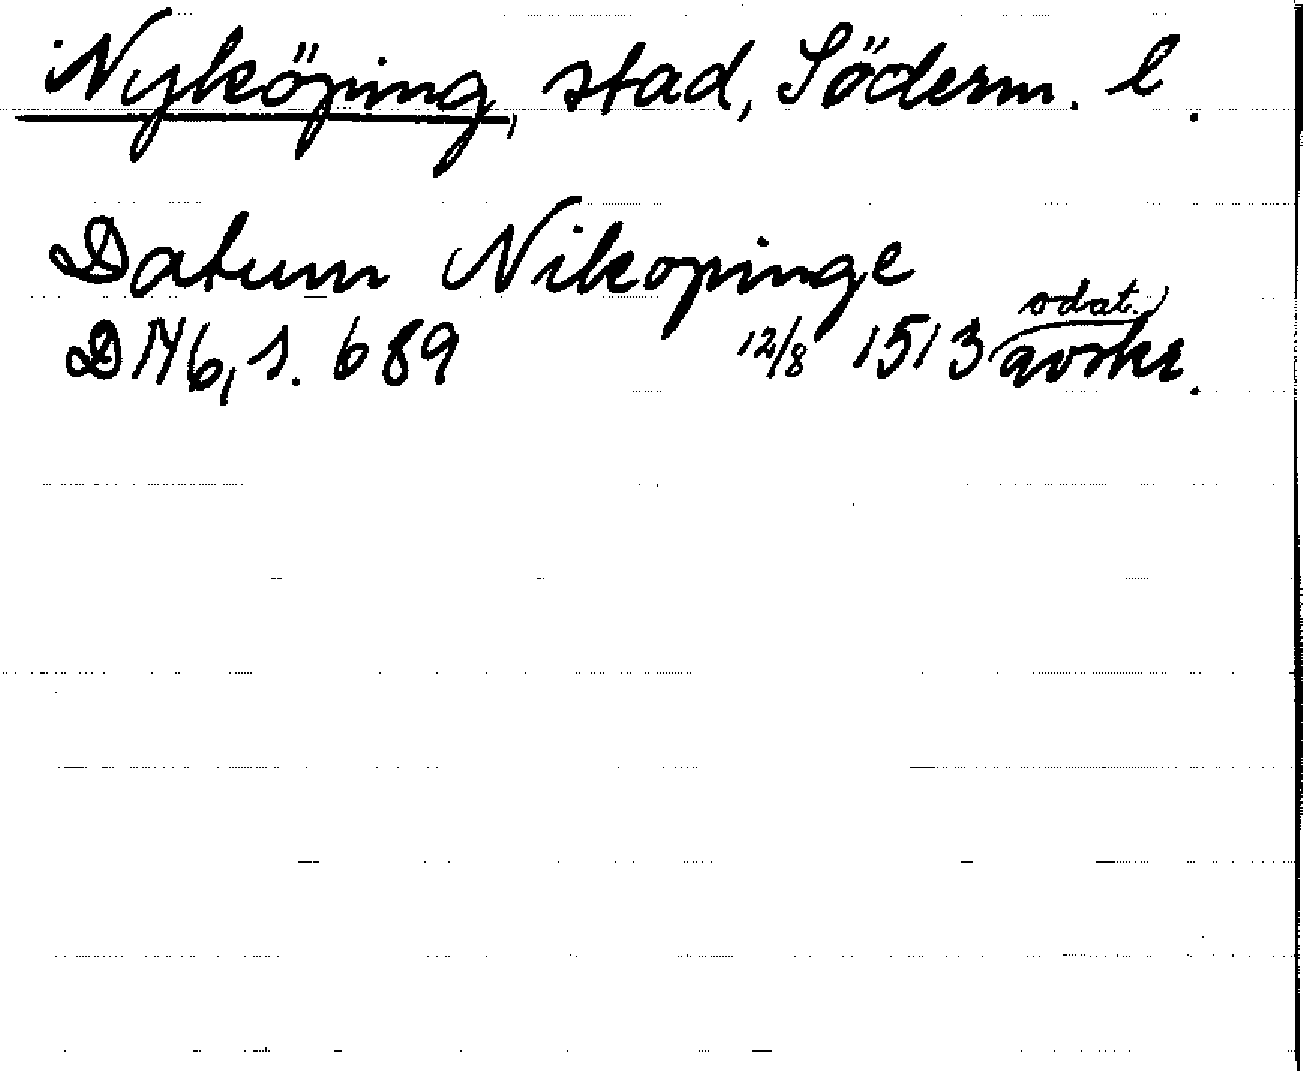 Nyköping, stad, Söderm. l.
Datum Nikopinge
DN6, s. 689 12/8 1513 odat. avskr.